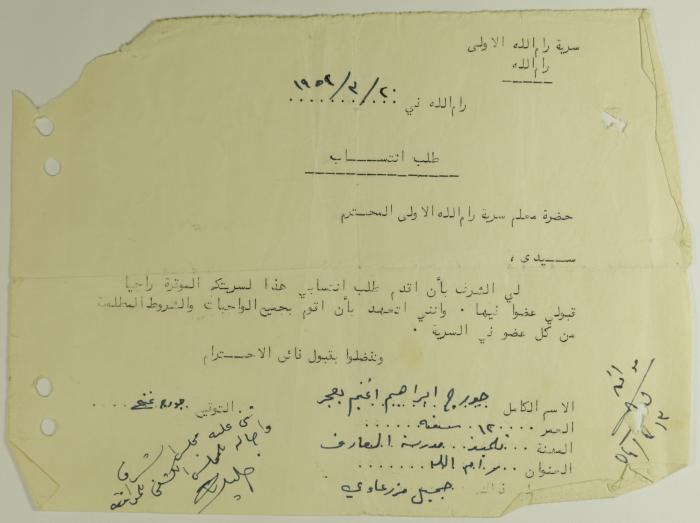 سرية رام الله الاولى
رام الله
رام الله في ٢٠/٣/١٩٥٢
طلب انتســـاب
حضرة معلم سرية رام الله الاولى المحترم
ســيدي ،
لي الشرف بأن اقدم طلب انتسابي هذا لسريتكم الموقرة راجيا
قبولي عضوا فيها . وانني اتعهد بأن اقوم بجميع الواجبات والشروط المطلوبة
من كل عضو في السرية .
وتفضلوا بقبول فائق الاحــترام
الاسم الكامل جورج ابراهيم
التوقيع جورج
العمر ١٢ سنة
المهنة تلميذ مدرسة المعارف
العنوان رام الله
جميل مزرعاوي